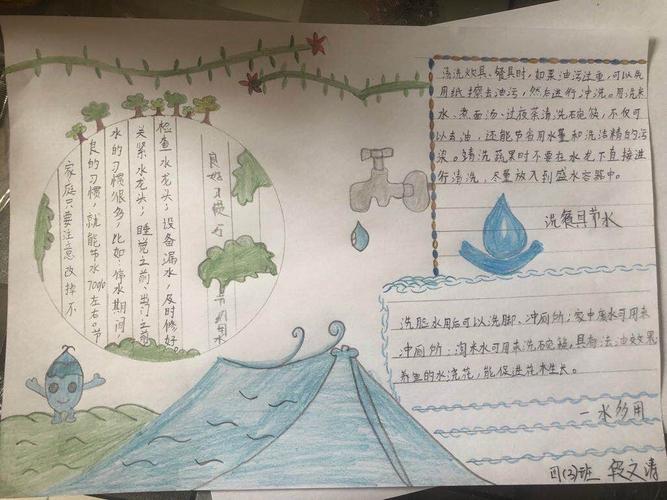 良好习惯与节约用水
检查水龙头,设备漏水,及时修好。
关紧水龙头;睡觉之前、出门之前
水的习惯很多,比如:停水期间
良的习惯,就能节水70%左右。节
家庭只要注意改掉不
清洗炊具、餐具时,如果油污过重,可以先
用纸擦去油污,然后进行冲洗。用洗米
水、煮面汤、过夜茶清洗碗筷,不仅可
以去油,还能节省用水量和洗洁精的污
染。清洗蔬果时不要在水龙下直接进
行清洗,尽量放入到盛水容器中。
洗餐具节水
洗脸水用后可以洗脚、冲厕所;家中废水可用来
冲厕所;淘米水可用来洗碗筷,具有去油效果
养鱼的水浇花,能促进花木生长。
一水多用
四(2)班 段文清